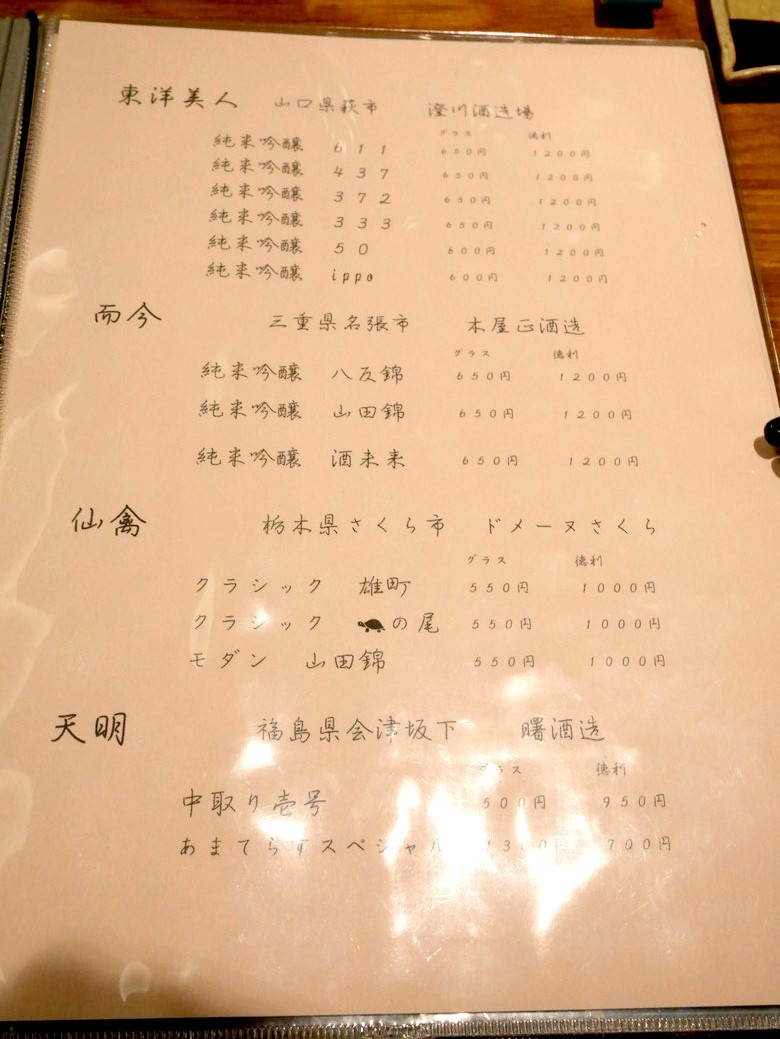 東洋美人 山口県萩市 澄川酒造場
グラス 徳利
純米吟醸 611 650円 1200円
純米吟醸 437 650円 1200円
純米吟醸 372 650円 1200円
純米吟醸 333 650円 1200円
純米吟醸 50 600円 1200円
純米吟醸 ippo 600円 1200円
而今 三重県名張市 木屋正酒造
グラス 徳利
純米吟醸 八反錦 650円 1200円
純米吟醸 山田錦 650円 1200円
純米吟醸 酒未来 650円 1200円
仙禽 栃木県さくら市 ドメーヌさくら
グラス 徳利
クラシック 雄町 550円 1000円
クラシック の尾 550円 1000円
モダン 山田錦 550円 1000円
天明 福島県会津坂下 曙酒造
グラス 徳利
中取り壱号 500円 950円
あまてらすスペシャル 700円